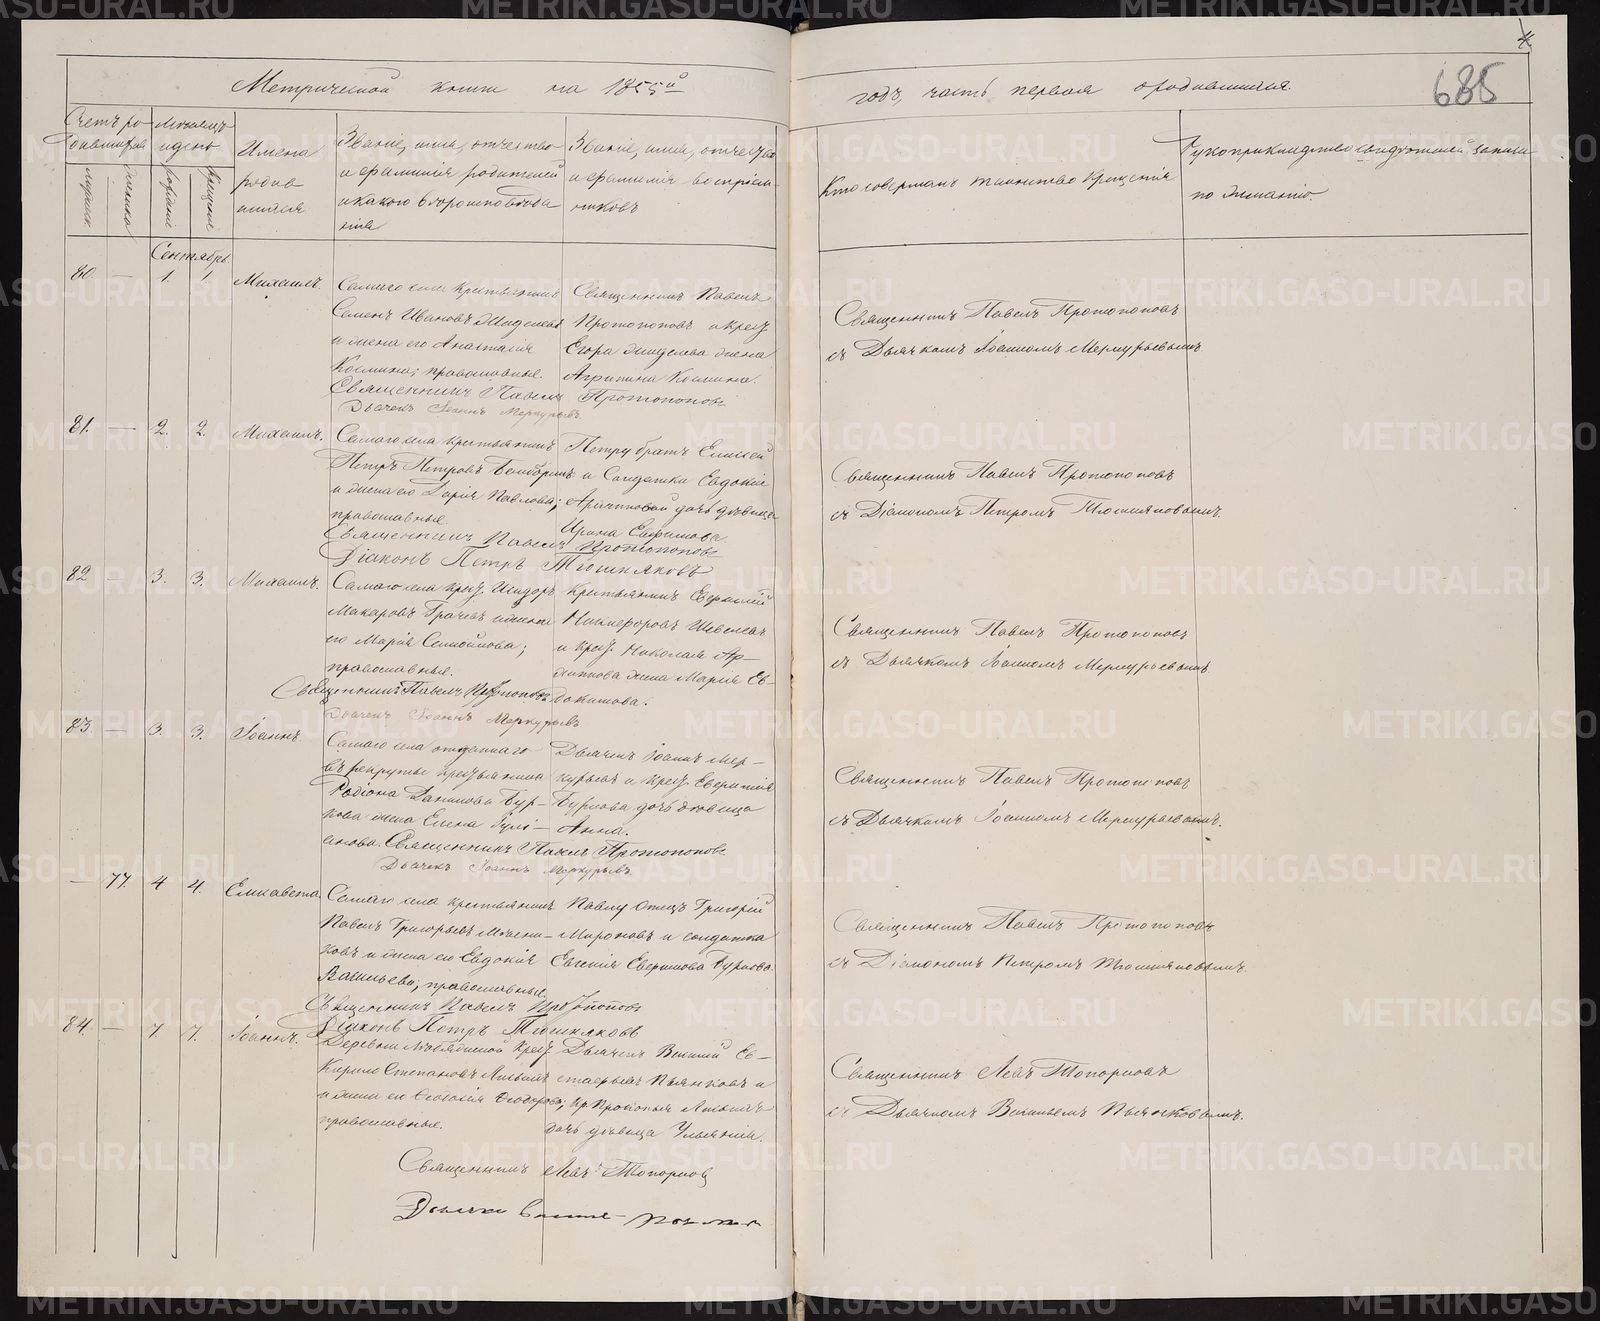 Метрической книги на 1855й
годъ, часть первая о родившихся.
685
Счетъ ро-
дившихся
Мѣсяцъ
и день
Имена
родив
шихся
Званіе, имя, отчество
и фамилія родителей
и какого вѣроисповѣда
нія
Званіе, имя, отчество
и фамилія воспріем-
никовъ
Кто совершалъ таинство крещенія
Рукоприкладство свидѣтелей записи
по желанію.
мужеска
женска
рожденія
крещенія
Сентябрь
80. — 1. 1. Михаилъ.
Самаго села крестьянинъ
Семенъ Ивановъ
и жена его Анастасія
Космина; православные.
Священникъ Павелъ
Протопоповъ и крест.
Егора жена
Агрипина Космина.
Священникъ Павелъ Протопоповъ
Дьячекъ Іоаннъ Меркурьевъ
Священникъ Павелъ Протопоповъ
съ Дьячкомъ Іоанномъ Меркурьевымъ
81. — 2. 2. Михаилъ.
Самаго села крестьянинъ
Петръ Петровъ
и жена его Дарія Павлова;
православные
Петру братъ Елисей
и Солдатки Евдокіи
дочь дѣвица
Ирина Ефимова
Священникъ Павелъ Протопоповъ
Діаконъ Петръ Тюшняковъ
Священникъ Павелъ Протопоповъ
съ Діакономъ Петромъ Тюшняковымъ.
82 — 3. 3. Михаилъ.
Самаго села крест. Исидоръ
Макаровъ Грачевъ и жена
его Марія Семіонова;
православные.
Крестьянинъ Ефимій
Никифоровъ Шевелевъ
и крест. Николая Ар-
хипова жена Марія Ев-
докимова.
Священникъ Павелъ Протопоповъ
Дьячекъ Іоаннъ Меркурьевъ
Священникъ Павелъ Протопоповъ
съ Дьячкомъ Іоанномъ Меркурьевымъ
83. — 3. 3. Іоаннъ.
Самаго села отданнаго
въ рекруты крестьянина
Родіона Данилова Бур-
кова жена Елена Іулі-
анова.
Дьячекъ Іоаннъ Мер-
курьевъ и крест.
Буркова дочь дѣвица
Анна.
Священникъ Павелъ Протопоповъ
Дьячекъ Іоаннъ Меркурьевъ
Священникъ Павелъ Протопоповъ
съ Дьячкомъ Іоанномъ Меркурьевымъ.
— 77. 4 4. Елисавета
Самаго села крестьянинъ
Павелъ Григорьевъ
ковъ и жена его Евдокія
Васильева, православные.
Павлу Отецъ Григорій
Мироновъ и солдатка
Евгенія Буркова.
Священникъ Павелъ Протопоповъ
Діаконъ Петръ Тюшняковъ
Священникъ Павелъ Протопоповъ
съ Діакономъ Петромъ Тюшняковымъ.
84. — 7. 7. Іоаннъ.
Деревни крест.
Кирило Степановъ
и жена его Ѳеодорова;
православные.
Дьячекъ Василій Ев-
стафьевъ Пьянковъ и
дочь дѣвица Ульянія.
Священникъ Левъ Топорковъ
Священникъ Левъ Топорковъ
съ Дьячкомъ Васильемъ Пьянковымъ.